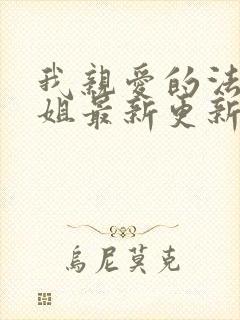 我親愛的法
姐最新更新
烏尼莫克